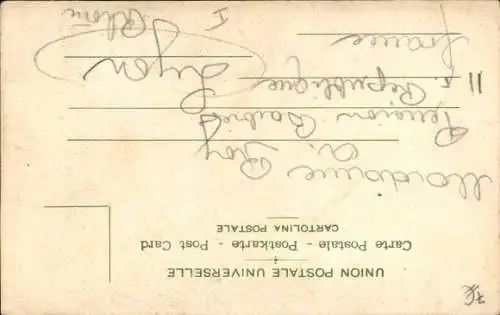 UNION POSTALE UNIVERSELLE
Carte Postale - Postkarte - Post Card
CARTOLINA POSTALE
Madame
A. Roy
Pension
11 République
Lyon
Rhône
France
I